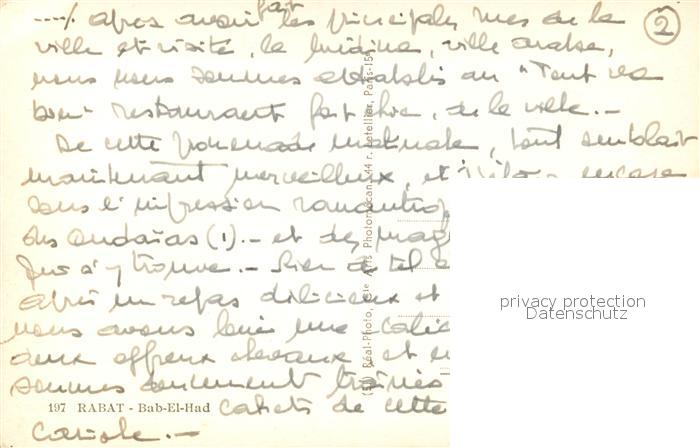 ....%. après avoir fait les principales rues de la ②
ville et visité, la médina, ville arabe,
nous nous sommes attablés au "Tout va
bien" restaurant fort chic, de la ville. -
De cette promenade matinale, tout semblait
maintenant merveilleux, et encore
sous l'impression
des Oudaïas (1). - et des
qui s'y trouve. - Rien de tel
après un repas délicieux et
nous avons loué une
deux affreux chevaux, et
sommes doucement
197 RABAT - Bab-El-Had cahots de cette
cariole. -
(51) Réal-Photo, Cie Arts Photomécan., 44 r. Letellier, Paris-15e
privacy protection
Datenschutz